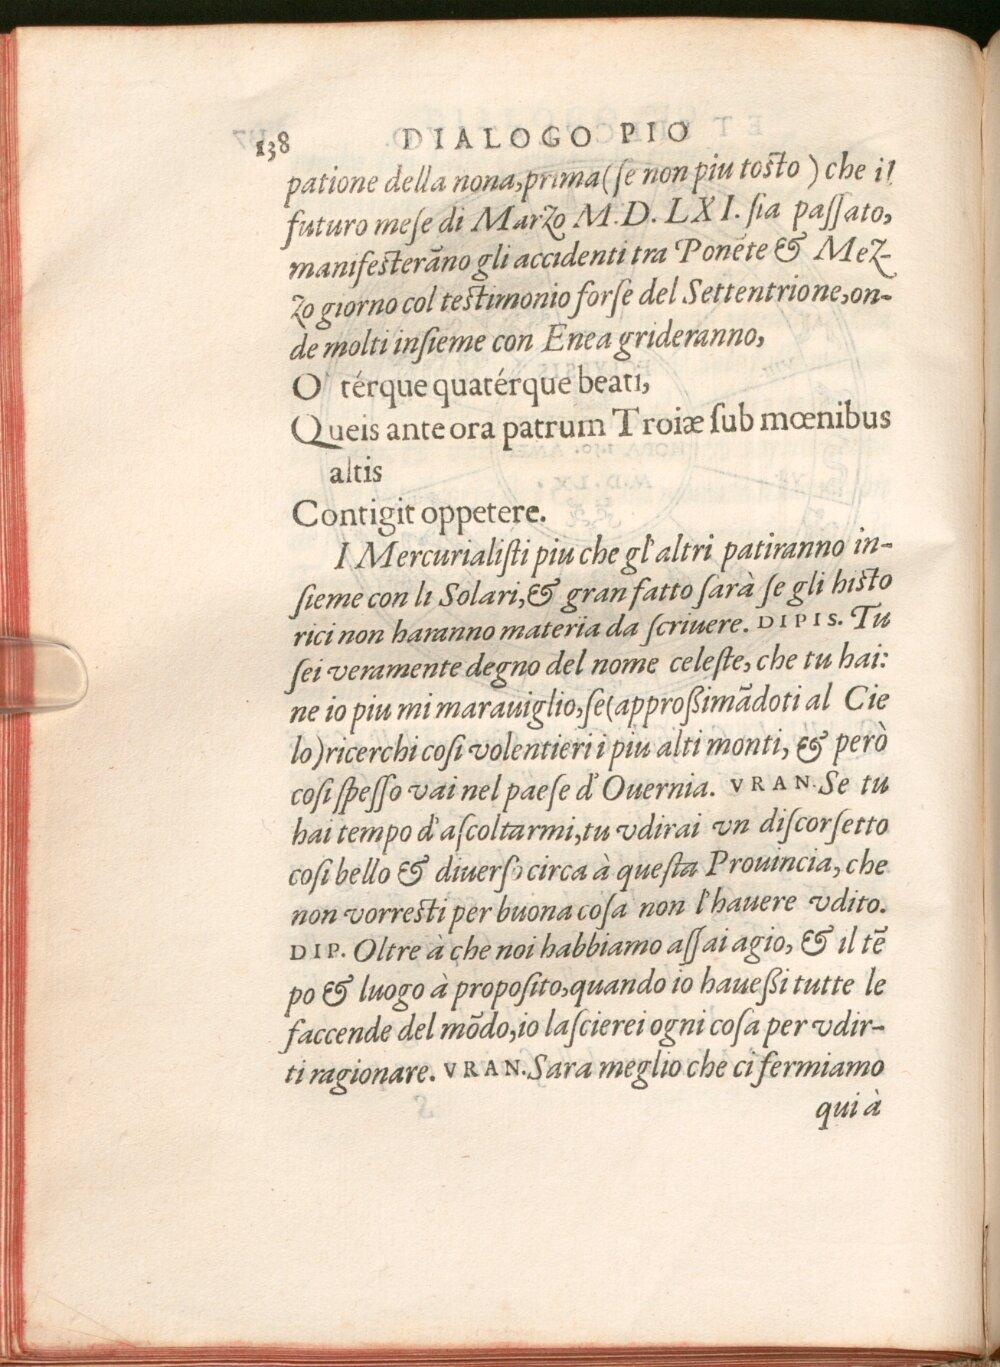 138 DIALOGO PIO
patione della nona, prima (ſe non piu toſto) che il
futuro meſe di Marzo M.D. LXI. ſia paſſato,
manifeſterãno gli accidenti tra Ponẽte & Mez-
zo giorno col teſtimonio forſe del Settentrione, on-
de molti inſieme con Enea grideranno,
O' térque quatérque beati,
Queis ante ora patrum Troiæ ſub mœnibus
altis
Contigit oppetere.
I Mercurialiſti piu che gl'altri patiranno in-
ſieme con li Solari, & gran fatto ſarà ſe gli hiſto
rici non haranno materia da ſcriuere. DIPIS. Tu
ſei veramente degno del nome celeſte, che tu hai:
ne io piu mi marauiglio, ſe (approßimãdoti al Cie
lo) ricerchi coſi volentieri i piu alti monti, & però
coſi ſpeſſo vai nel paeſe d'Ouernia. VRAN. Se tu
hai tempo d'aſcoltarmi, tu vdirai vn diſcorſetto
coſi bello & diuerſo circa à queſta Prouincia, che
non vorreſti per buona coſa non l'hauere vdito.
DIP. Oltre à che noi habbiamo aſſai agio, & il tẽ
po & luogo à propoſito, quando io haueßi tutte le
faccende del mõdo, io laſcierei ogni coſa per vdir-
ti ragionare. VRAN. Sara meglio che ci fermiamo
qui à